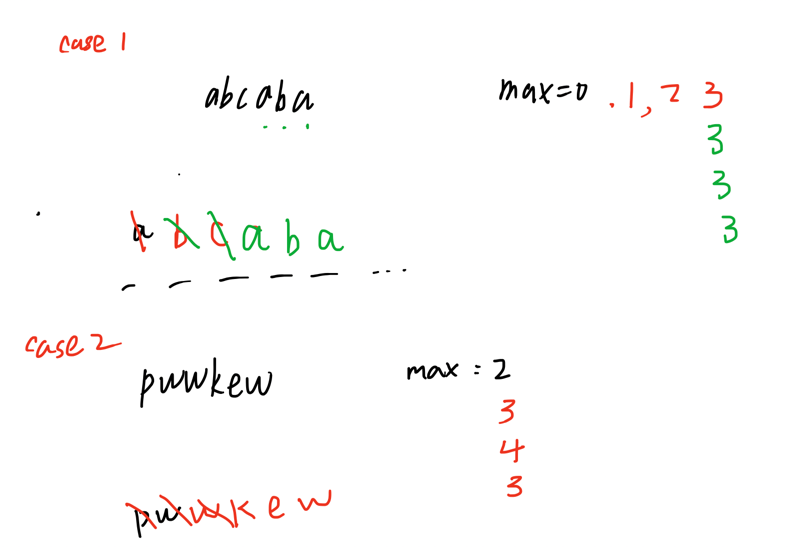 case 1
abcaba max=0 .1, 2 3
3
3
3
a b c a b a
...
case 2
pwwkew max : 2
3
4
3
pwwkew